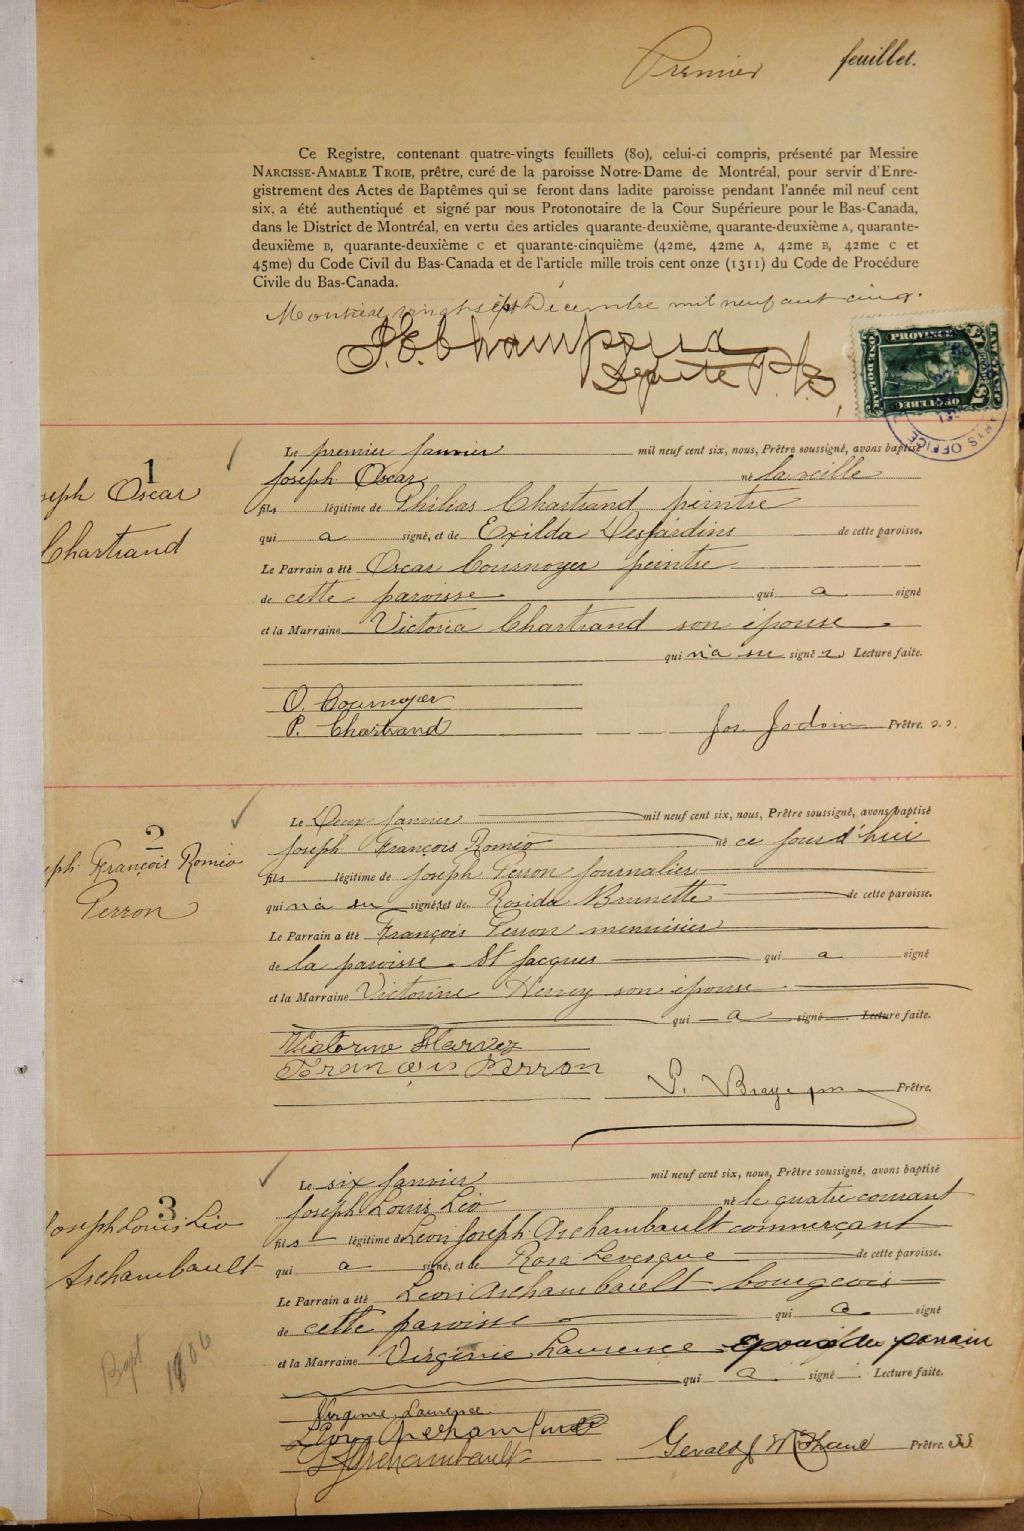 Premier feuillet.
Ce Registre, contenant quatre-vingts feuillets (80), celui-ci compris, présenté par Messire
NARCISSE-AMABLE TROIE, prêtre, curé de la paroisse Notre-Dame de Montréal, pour servir d'Enre-
gistrement des Actes de Baptêmes qui se feront dans ladite paroisse pendant l'année mil neuf cent
six, a été authentiqué et signé par nous Protonotaire de la Cour Supérieure pour le Bas-Canada,
dans le District de Montréal, en vertu des articles quarante-deuxième, quarante-deuxième A, quarante-
deuxième B, quarante-deuxième C et quarante-cinquième (42me, 42me A, 42me B, 42me C et
45me) du Code Civil du Bas-Canada et de l'article mille trois cent onze (1311) du Code de Procédure
Civile du Bas-Canada.
Montréal, vingt sept Décembre mil neuf cent cinq.
Député P.
PROVINCE
ONE DOLLAR
QUEBEC
OFFICE
1
Joseph Oscar
Chartrand
Le premier Janvier mil neuf cent six, nous, Prêtre soussigné, avons baptisé
Joseph Oscar né la veille
fils légitime de Philias Chartrand peintre
qui a signé, et de Exilda Desjardins de cette paroisse.
Le Parrain a été Oscar Cournoyer peintre
de cette paroisse qui a signé
et la Marraine Victoria Chartrand son épouse
qui n'a su signer Lecture faite.
O. Cournoyer
P. Chartrand Jos Jodoin Prêtre. s.s.
2
eph François Roméo
Perron
Le Deux Janvier mil neuf cent six, nous, Prêtre soussigné, avons baptisé
Joseph François Roméo né ce jourd'hui
fils légitime de Joseph Perron journalier
qui n'a su signer, et de Rosida Brunette de cette paroisse.
Le Parrain a été François Perron menuisier
de la paroisse St Jacques qui a signé
et la Marraine Victorine Hervey son épouse
qui a signé Lecture faite.
Victorine Harvez
François Perron
P. Prêtre.
3
Joseph Louis Léo
Archambault
Bapt 1906
Le six Janvier mil neuf cent six, nous, Prêtre soussigné, avons baptisé
Joseph Louis Léo né le quatre courant
fils légitime de Léon Joseph Archambault commerçant
qui a signé, et de Rosa Levesque de cette paroisse.
Le Parrain a été Léon Archambault bourgeois
de cette paroisse qui a signé
et la Marraine Virginie Laurence Epouse du parrain
qui a signé Lecture faite.
Virginie Laurence
Léon Archambault
Archambault Gerald Prêtre. SS.